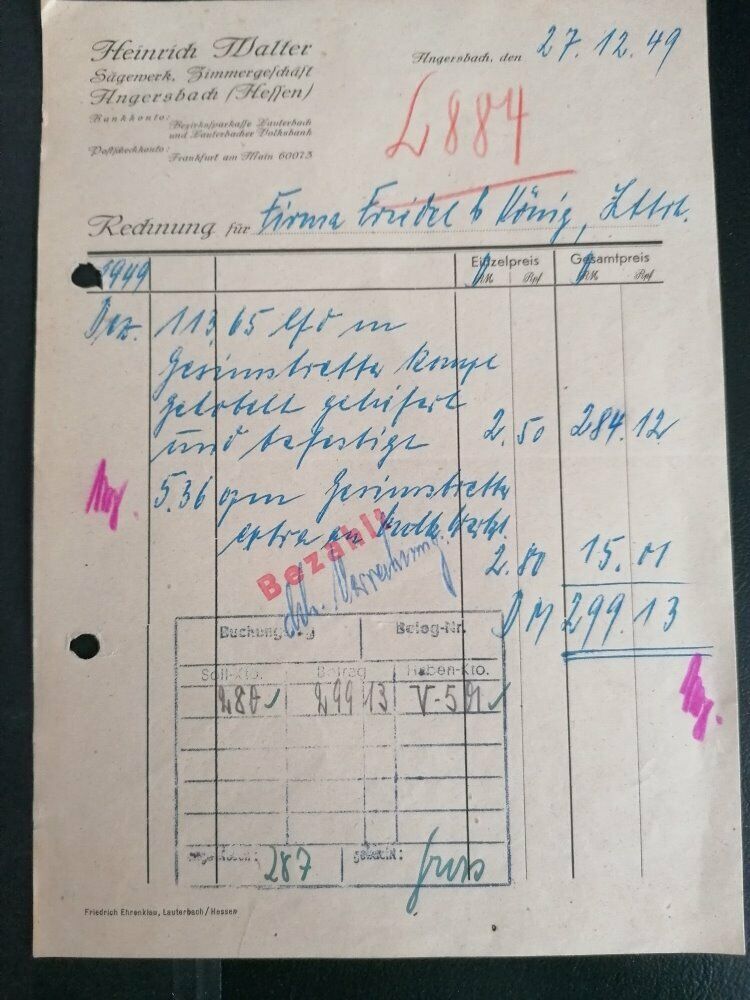 Heinrich Walter
Sägewerk, Zimmergeschäft
Angersbach (Hessen)
Bankkonto: Bezirkssparkasse Lauterbach
und Lauterbacher Volksbank
Postscheckkonto: Frankfurt am Main 60073
Angersbach, den 27.12.49
L 884
Rechnung für Firma Friedel & König,
Einzelpreis Gesamtpreis
1949 RM Rpf RM Rpf
Dez. 113,65 lfd m
Gesimsbretter
gehobelt geliefert
und befestigt 2.50 284.12
5.36 qm Gesimsbretter
extra an
2.80 15.01
Bezahlt
Verrechnung
DM 299.13
Buchung Beleg-Nr.
Soll-Kto. Betrag Haben-Kto.
280 299 13 V-591
287
Friedrich Ehrenklau, Lauterbach/Hessen